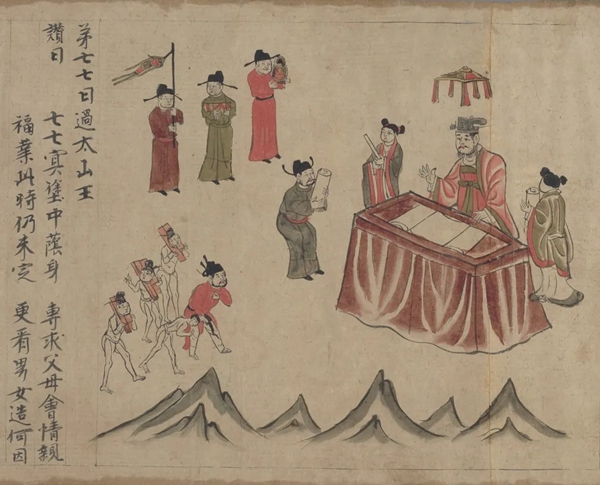 弟七七日過太山王
讚曰 七七冥塗中蔭身 專求父母會情親
福業此時仍未定 更看男女造何因